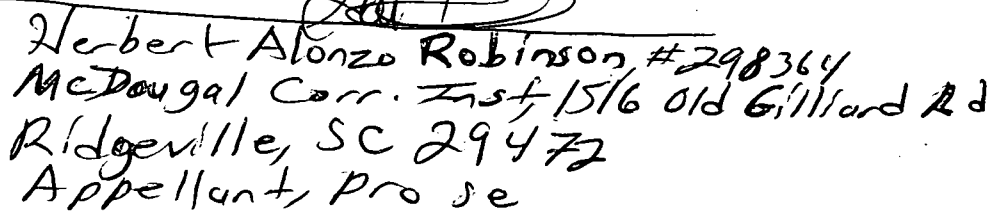 Herbert Alonzo Robinson #298364
McDougal Corr. Inst, 1516 Old Gilliard Rd
Ridgeville, SC 29472
Appellant, pro se